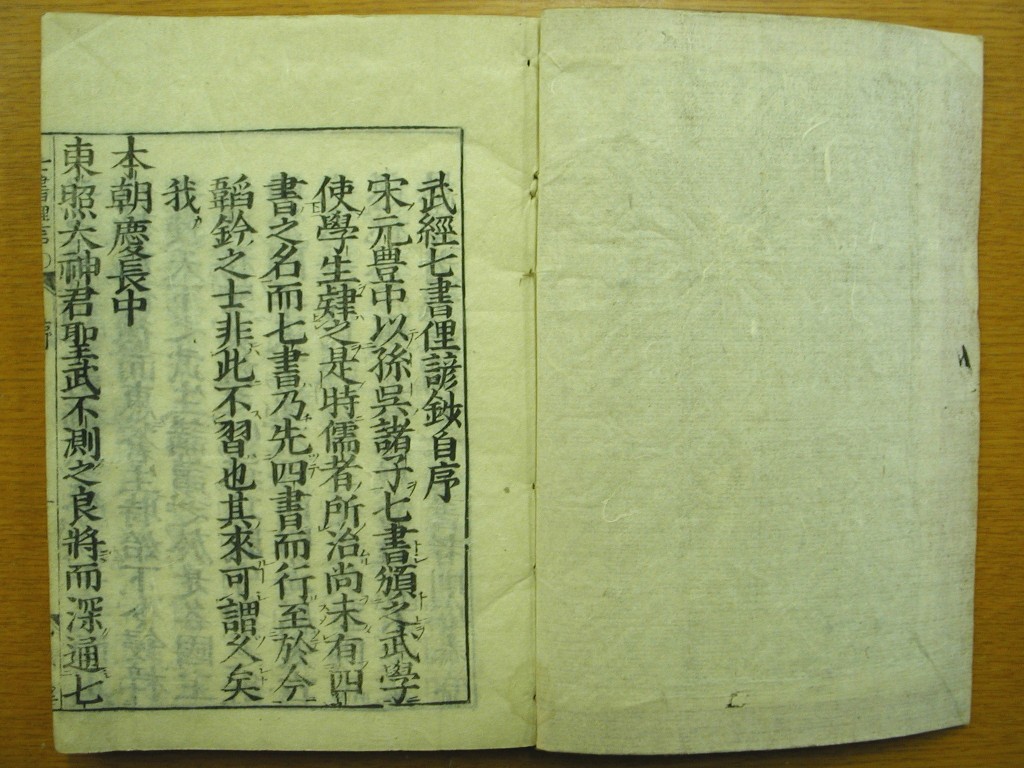 武經七書俚諺鈔自序
宋元豊中以孫呉諸子七書頒之武學
使學生肄之是時儒者所治尚未有四
書之名而七書乃先四書而行至於今
韜鈐之士非此不習也其來可謂久矣
我
本朝慶長中
東照大神君聖武不測之良將而深通七